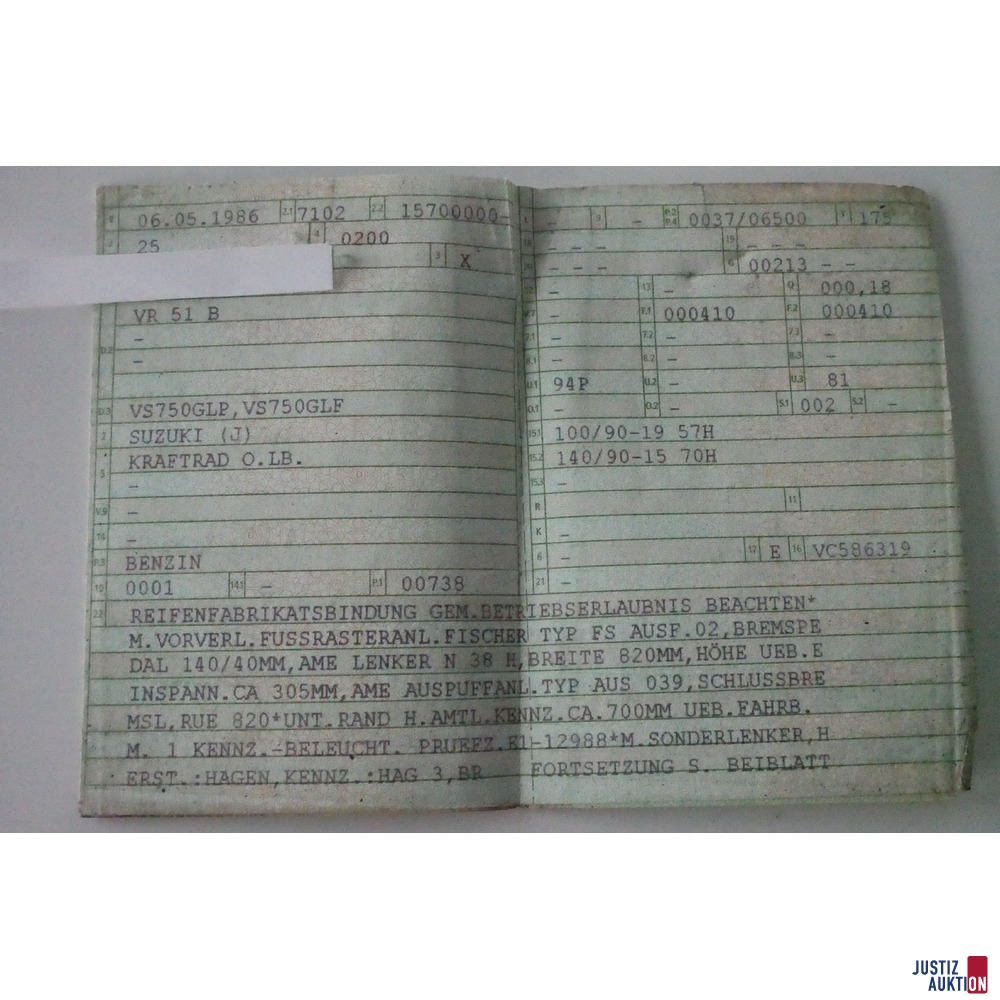 B 06.05.1986 2.1 7102 2.2 15700000-
J 25 4 0200
3 X
VR 51 B
-
D.2 -
D.3 VS750GLP,VS750GLF
2 SUZUKI (J)
KRAFTRAD O.LB.
5 -
V.9 -
14 -
P.3 BENZIN
10 0001 14.1 - P.1 00738
L - 9 - P.2 P.4 0037/06500 T 175
18 - - - 19 - - -
20 - - - G 00213 - -
12 - 13 - Q 000,18
V.7 - F.1 000410 F.2 000410
7.1 - 7.2 - 7.3 -
8.1 - 8.2 - 8.3 -
U.1 94P U.2 - U.3 81
O.1 - O.2 - S.1 002 S.2 -
15.1 100/90-19 57H
15.2 140/90-15 70H
15.3 -
R 11
K -
6 - 17 E 16 VC586319
21 -
22 REIFENFABRIKATSBINDUNG GEM.BETRIEBSERLAUBNIS BEACHTEN*
M.VORVERL.FUSSRASTERANL.FISCHER TYP FS AUSF.02,BREMSPE
DAL 140/40MM,AME LENKER N 38 H,BREITE 820MM,HÖHE UEB.E
INSPANN.CA 305MM,AME AUSPUFFANL.TYP AUS 039,SCHLUSSBRE
MSL,RUE 820*UNT.RAND H.AMTL.KENNZ.CA.700MM UEB.FAHRB.
M. 1 KENNZ.-BELEUCHT. PRUEFZ.E1-12988*M.SONDERLENKER,H
ERST.:HAGEN,KENNZ.:HAG 3,BR FORTSETZUNG S. BEIBLATT
JUSTIZ
AUKTION